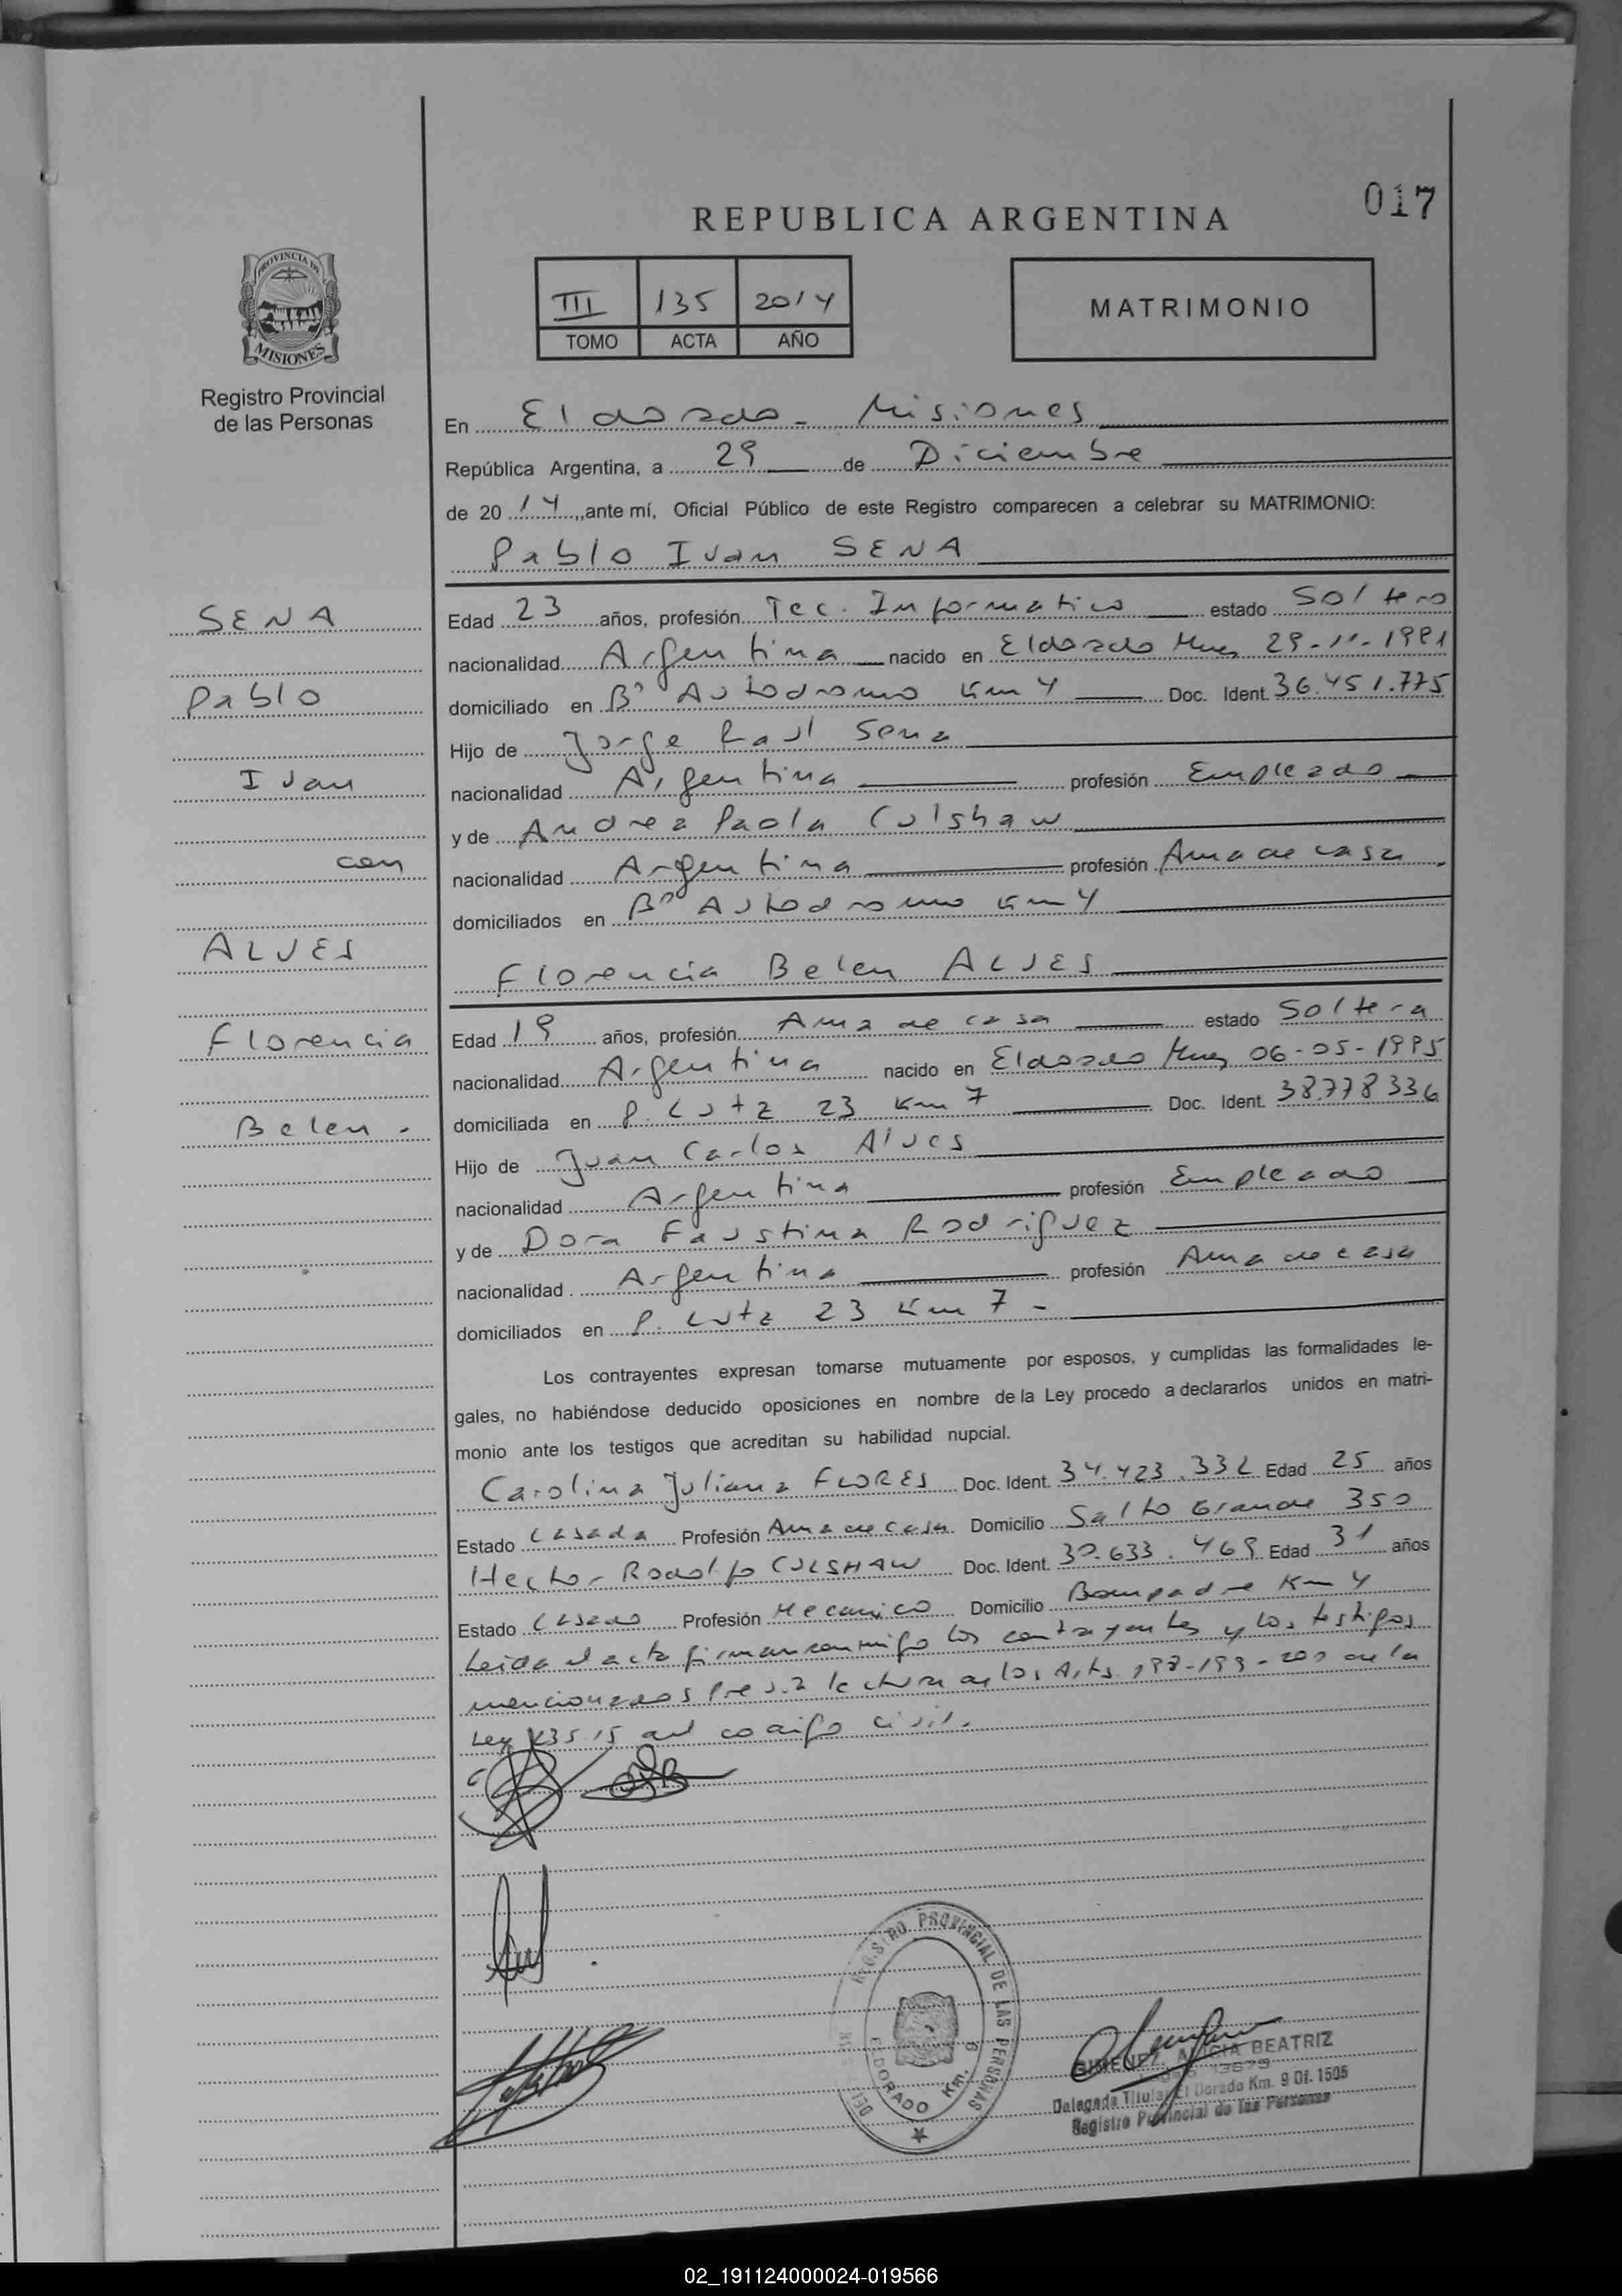 017
REPUBLICA ARGENTINA
PROVINCIA DE
MISIONES
Registro Provincial
de las Personas
III 135 2014
TOMO ACTA AÑO
MATRIMONIO
En Eldorado - Misiones
República Argentina, a 29 de Diciembre
de 2014, ante mí, Oficial Público de este Registro comparecen a celebrar su MATRIMONIO:
Pablo Ivan SENA
SENA
Pablo
Ivan
con
ALVES
Florencia
Belen -
Edad 23 años, profesión Tec. Informatico estado Soltero
nacionalidad Argentina nacido en Eldorado Mnes 29-11-1991
domiciliado en Bº Autodromo Km 4 Doc. Ident. 36.451.775
Hijo de Jorge Raul Sena
nacionalidad Argentina profesión Empleado
y de Andrea Paola Culshaw
nacionalidad Argentina profesión Ama de casa
domiciliados en Bº Autodromo Km 4
Florencia Belen ALVES
Edad 19 años, profesión Ama de casa estado Soltera
nacionalidad Argentina nacido en Eldorado Mnes 06-05-1995
domiciliada en P. Lutz 23 Km 7 Doc. Ident. 38.778336
Hijo de Juan Carlos Alves
nacionalidad Argentina profesión Empleado
y de Dora Faustina Rodriguez
nacionalidad Argentina profesión Ama de casa
domiciliados en P. Lutz 23 Km 7 -
Los contrayentes expresan tomarse mutuamente por esposos, y cumplidas las formalidades le-
gales, no habiéndose deducido oposiciones en nombre de la Ley procedo a declararlos unidos en matri-
monio ante los testigos que acreditan su habilidad nupcial.
Carolina Juliana FLORES Doc. Ident. 34.423.332 Edad 25 años
Estado Casada Profesión Ama de casa Domicilio Salto Grande 350
Hector Rodolfo CULSHAW Doc. Ident. 30.633.469 Edad 31 años
Estado Casado Profesión Mecanico Domicilio Bompadre Km 4
Leida el acta firman conmigo los contrayentes y los testigos
mencionados previa lectura de los Arts. 198-199-200 de la
Ley 23515 del codigo civil.
REGISTRO PROVINCIAL DE LAS PERSONAS
ELDORADO Km. 9
GIMENEZ, ALICIA BEATRIZ
Delegada Titular El Dorado Km. 9 Of. 1505
Registro Provincial de las Personas
02_191124000024-019566